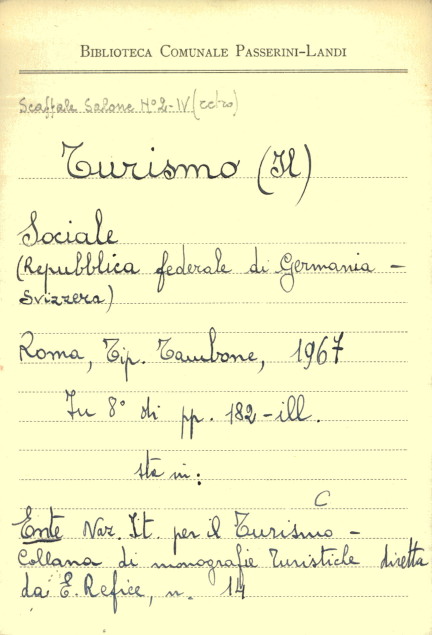 BIBLIOTECA COMUNALE PASSERINI-LANDI
Scaffale Salone N°2-IV (retro)
Turismo (Il)
Sociale
(Repubblica federale di Germania –
Svizzera)
Roma, Tip. Tambone, 1967
In 8° di pp. 182 - ill.
sta in:
C
Ente Naz. It. per il Turismo –
Collana di monografie Turistiche diretta
da E. Refice, n. 14